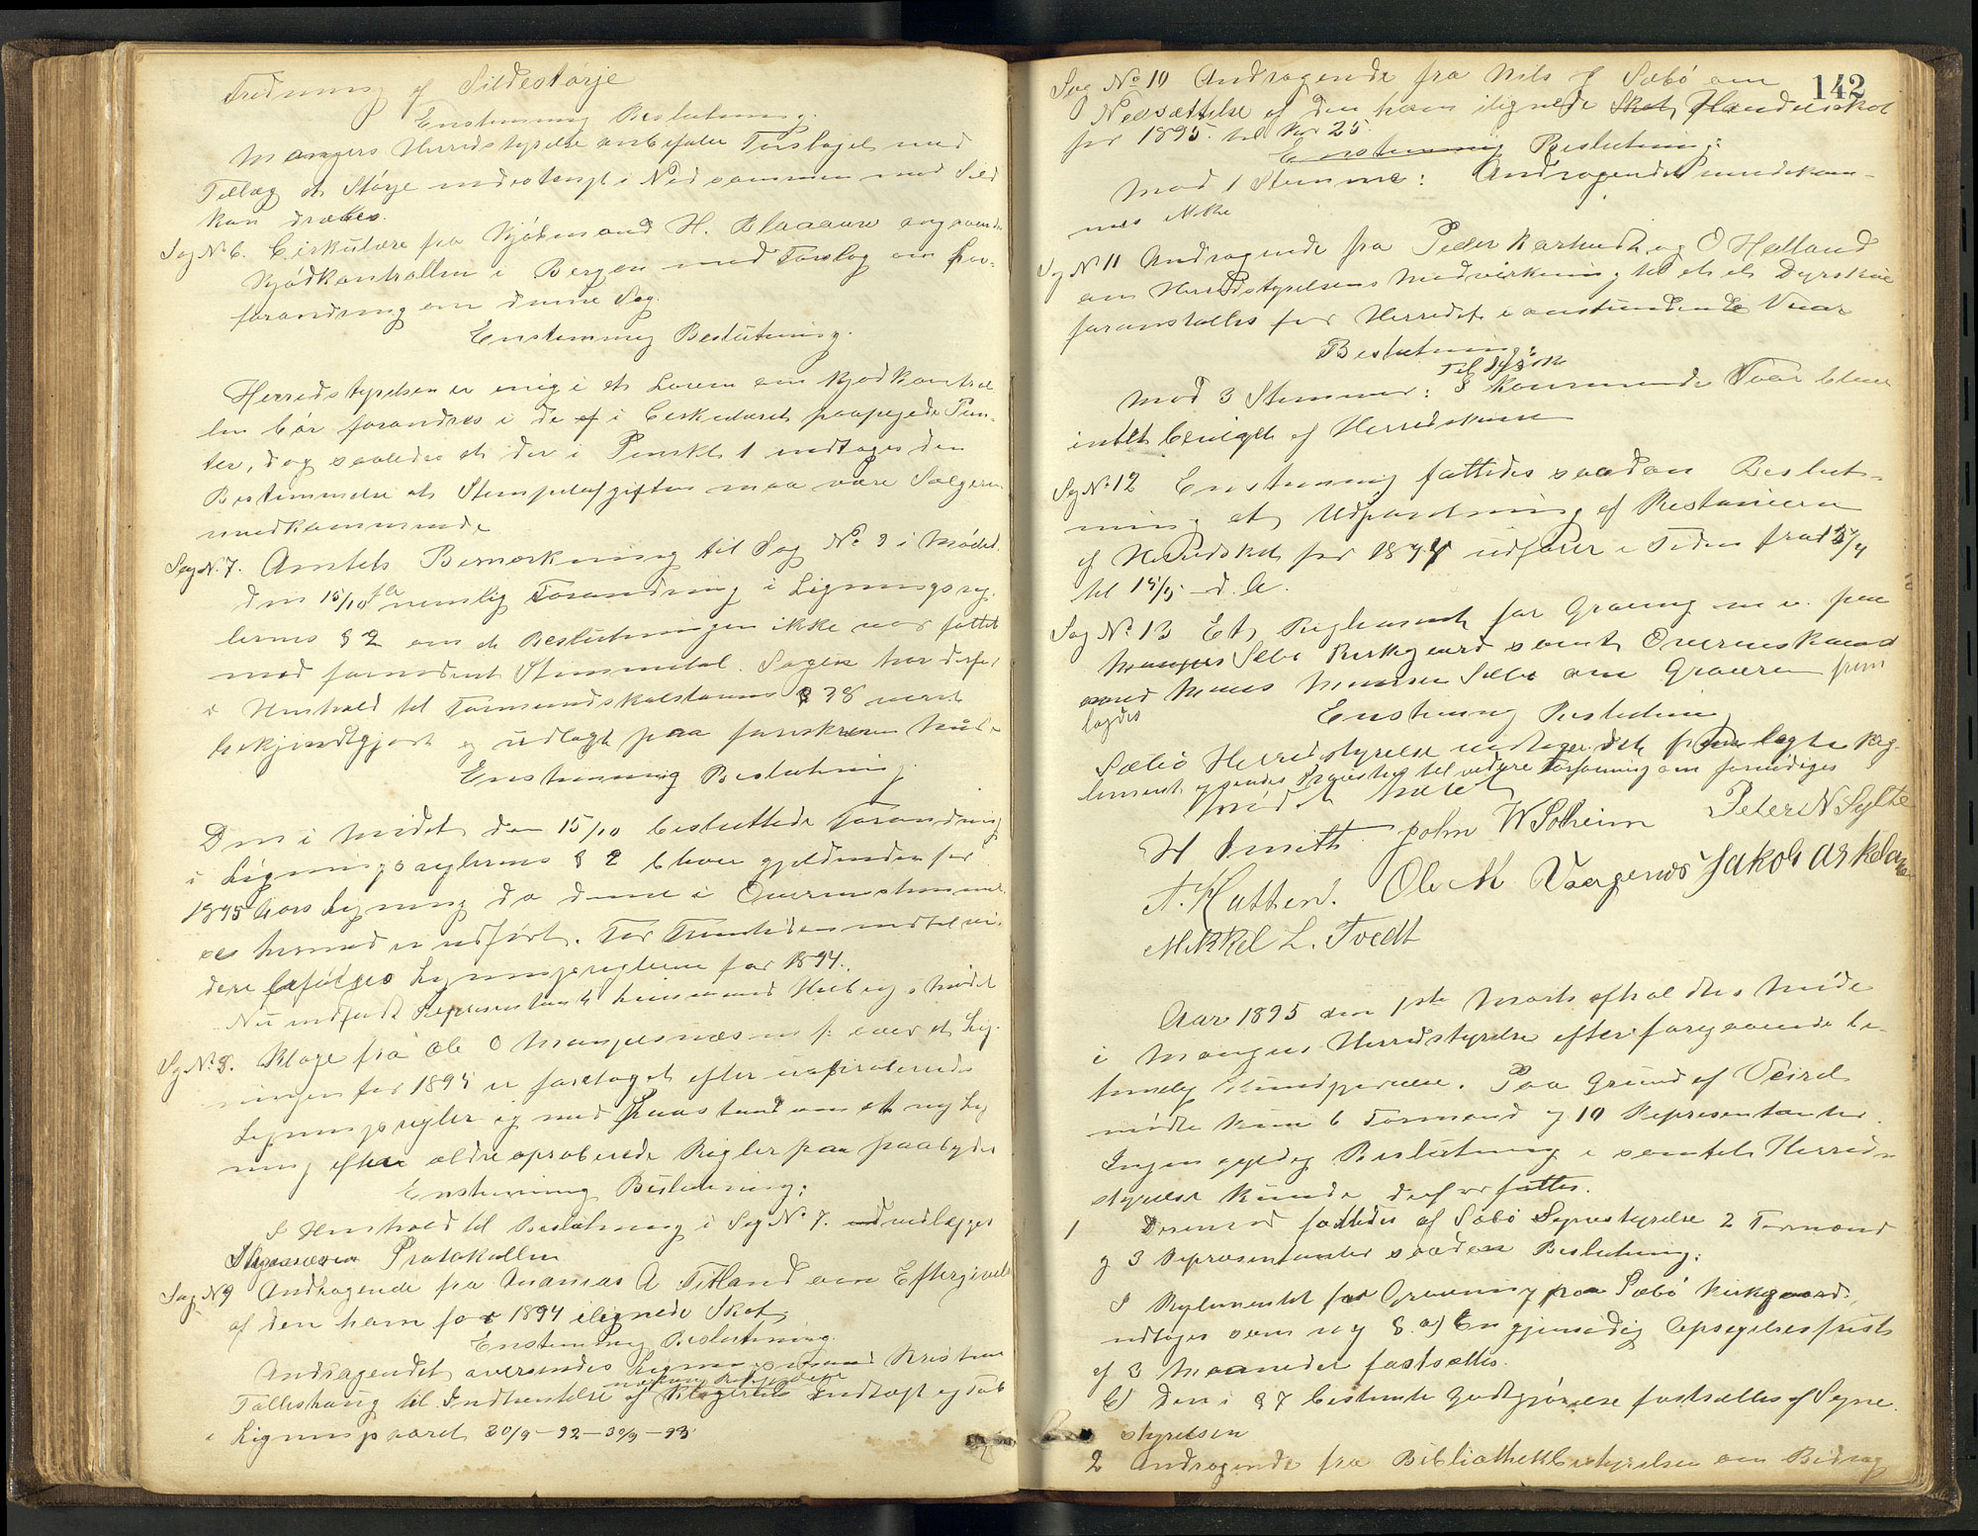 Fredning af Sildestørje
Enstemmig Beslutning:
Mangers Herredstyrelse anbefaler Forslaget med
Tillæg at Størje indestængt i Nod sammen med Sild
kan dræbes.
Sag N. 6. Cirkulære fra Kjøbmand H. Blaauw angaaende
Kjødkontrollen i Bergen med Forslag om Lov-
forandring om denne Sag.
Enstemmig Beslutning.
Herredstyrelsen er enig i at Loven om Kjødkontrol
len bør forandres i de af i Cirkulæret paapegede Punk-
ter, dog saaledes at der i Punkt 1 indtages den
Bestemmelse at Stempelafgiften maa være Sælgeren
uvedkommende
Sag N. 7. Amtets Bemærkning til Sag No 9 i Mødet
den 15/10 f.A. nemlig Forandring i Ligningsreg-
lernes § 2 om at Beslutningen ikke var fattet
med fornødent Stemmetal. Sagen har derfor
i Henhold til Formandskabslovens § 38 været
bekjendtgjort og udlagt paa foreskreven Maade
Enstemmig Beslutning.
Den i Mødet den 15/10 besluttede Forandring
i Ligningsreglernes § 2 bliver gjeldende for
1895 Aars Ligning da denne i Overensstemmel-
se hermed er udført. For Fremtiden indtil vi-
dere befølges Ligningsreglerne for 1894.
Nu indfandt Repræsentant Lensmand Helberg i Mødet
Sag N. 8. Klage fra Ole O Mangersnæs m fl over at Lig-
ningen for 1895 er foretaget efter uaproberede
Ligningsregler og med Paastand om at ny Lig
ning efter ældre aproberede Regler paa paabydes
Enstemmig Beslutning:
I Henhold til Beslutning i Sag No 7. vedlægges
Skrivelsen Protokollen
Sag N 9 Andragende fra Ananias A Titland om Eftergivelse
af den ham for 1894 ilignede Skat
Enstemmig Beslutning.
Andragendet oversendes Kristian
Tolleshaug til Indhentelse af Klagerens Indtægt og Tab
i Ligningsaaret 30/9 - 92 - 30/9 - 93
142
Sag No 10 Andragende fra Nils J Sæbø om
Nedsættelse af den ham ilignede Skat, Handelsskat
for 1895. til Kr 25.
Enstemmig Beslutning:
Mod 1 Stemme: Andragendet imødekom-
mes ikke
Sag N 11 Andragende fra Peder Karhudt og O Helland
om Herredstyrelsens Medvirkning til at et Dyrskue
foranstaltes for Herredet i anstundende Vaar
Beslutning:
Mod 3 Stemmer: Til I kommende Vaar blev
intet bevilget af Herredskassen
Sag N. 12 Enstemmig fattedes saadan Beslut-
ning at Udpantning af Restancerne
af Herredskat for 1894 udføres i Tiden fra
til 15/5 d. A.
Sag No 13 Et Reglement for Graving m. v. paa
Manger Sæbø Kirkegaard samt Overenskomst
med Mons Monsen Sæbø om Graveren frem
lagdes
Enstemmig Beslutning
Sæbø Herredstyrelse vedtager det fremlagte Reg-
lement og sendes Præsten til videre Forføining om fornødiges
Mødet hævet
H Smith John W Solheim Peter N Sylte
A. Hatten. Ole M Vaagenes Jakob Askeland
Mikkel L. Tvedt
Aar 1895 den 1ste Marts afholdtes Møde
i Mangers Herredstyrelse efter foregaaende be-
timelig Kundgjørelse. Paa Grund af Veiret
mødte kun 6 Formænd og 10 Repræsentanter.
Ingen gyldig Beslutning i samlet Herreds-
styrelse kunde derfor fattes.
1 Derimod fattedes af Sæbø Sognestyrelse 2 Formænd
og 3 Repræsentanter saadan Beslutning:
I Reglementet for Graving paa Sæbø Kirkegaard,
indtages som ny § a) En gjensidig Opsigelsesfrist
af 3 Maaneder fastsættes.
b) Den i § 7 bestemte Godtgjørelse fastsættes af Sogne
styrelsen
2 Andragende fra Bibliothekbestyrelsen om Bidrag